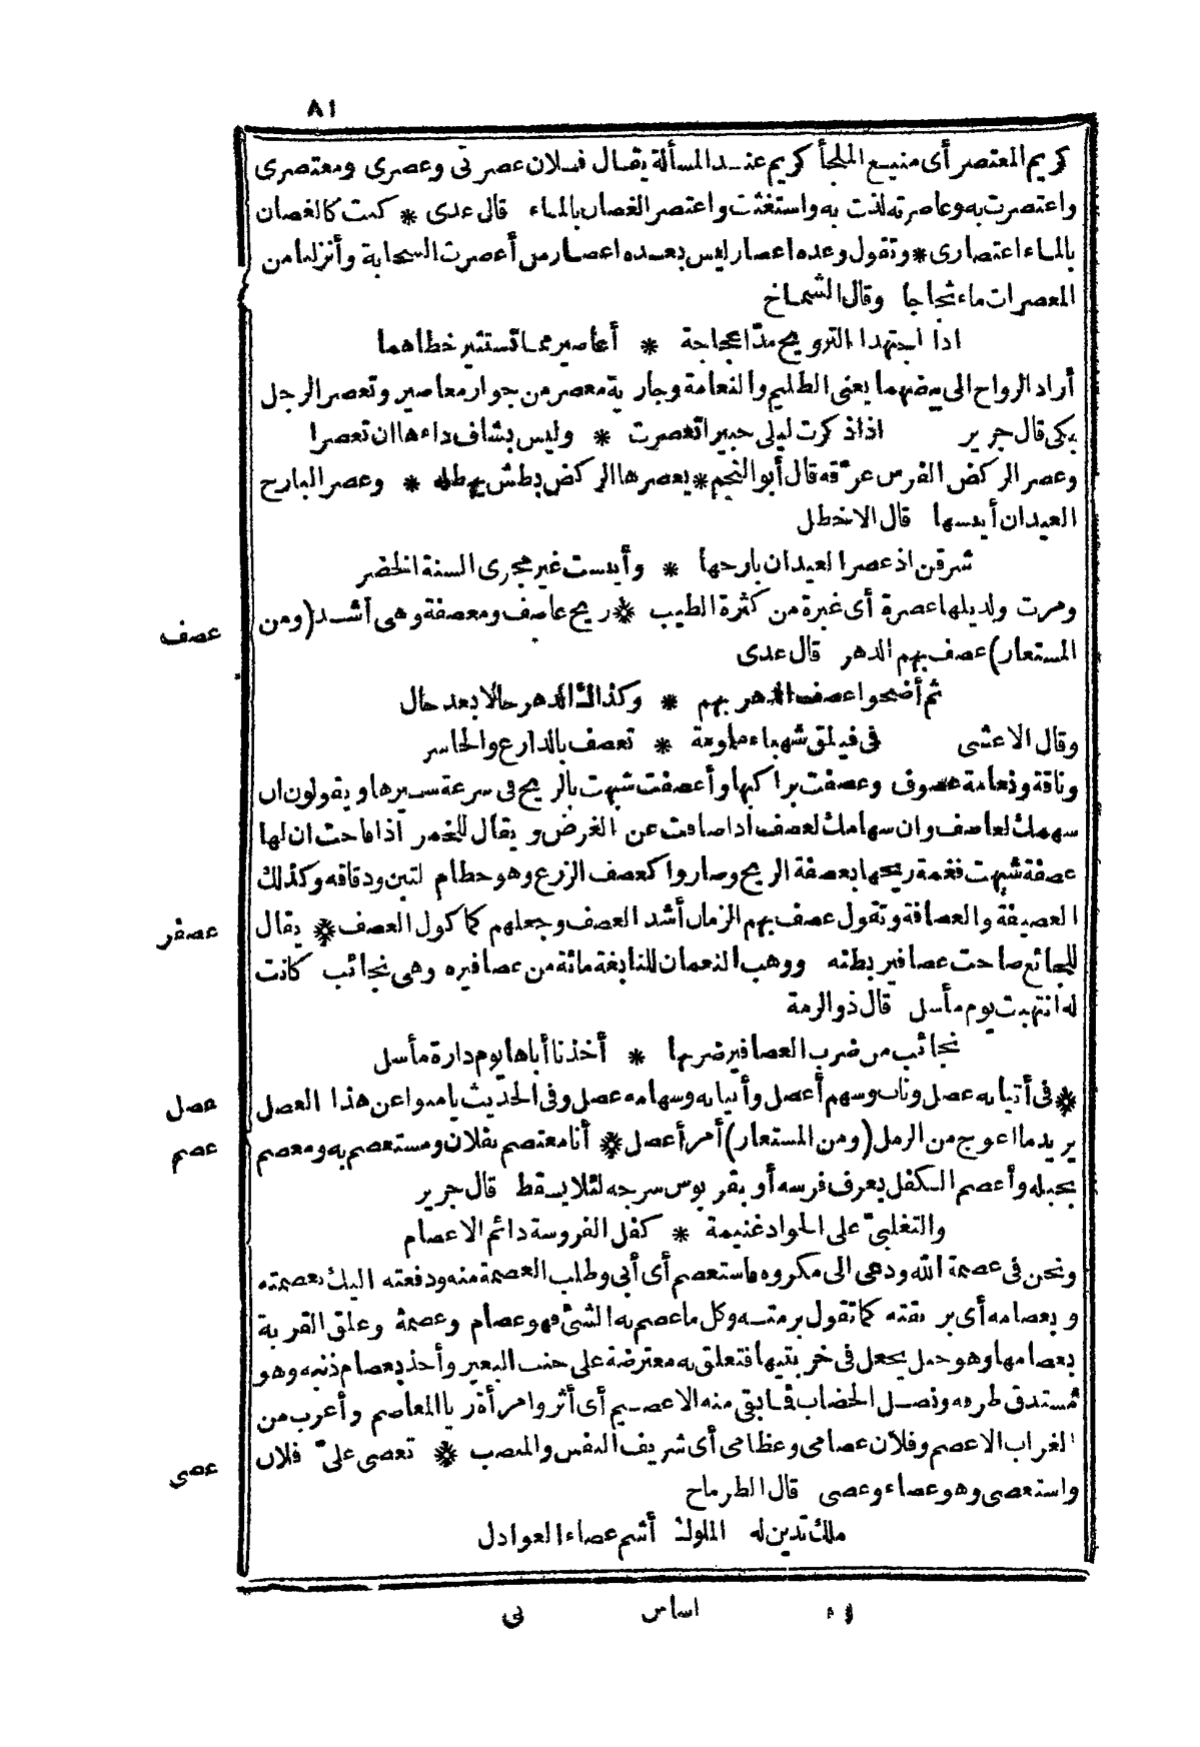 ٨١
كريم المعتصر أى منيع الملجأ كريم عند المسألة يقال فلان عصرتى وعصرى ومعتصرى
واعتصرت به وعاصرته لذت به واستغثت واعتصر الغصان بالماء قال عدى * كنت كالغصان
بالماء اعتصارى * وتقول وعده اعصار ليس بعده اعصار من أعصرت السحابة وأنزلنا من
المعصرات ماء ثجاجا وقال الشماخ
اذا اجتهدا الترويح مدّا عجاجة * أعاصير مما تستثير خطاهما
أراد الرواح الى بيضهما يعنى الظليم والنعامة وجارية معصر من جوار معاصير وتعصر الرجل
بكى قال جرير اذا ذكرت ليلى جبيرا تعصرت * وليس بشاف داءها ان تعصرا
وعصر الركض الفرس عرّقه قال أبو النجم * يعصرها الركض بطش يهطله * وعصر البارح
العيدان أيبسها قال الاخطل
شرقن اذ عصر العيدان بارحها * وأيبست غير مجرى السنة الخضر
ومرت ولذيلها عصرة أى غبرة من كثرة الطيب * ريح عاصف ومعصفة وهى أشد (ومن
عصف
المستعار) عصف بهم الدهر قال عدى
ثم أضحوا عصف الدهر بهم * وكذاك الدهر حالا بعد حال
وقال الاعشى فى فيلق شهباء ملومة * تعصف بالدارع والحاسر
وناقة ونعامة عصوف وعصفت براكبها وأعصفت شبهت بالريح فى سرعة سيرها ويقولون ان
سهمك لعاصف وان سهامك لعصف اذا صافت عن الغرض ويقال للخمر اذا فاحت ان لها
عصفة شبهت فغمة ريحها بعصفة الريح وصاروا كعصف الزرع وهو حطام لتبن ودقاقه وكذلك
العصيفة والعصافة وتقول عصف بهم الزمان أشد العصف وجعلهم كمأكول العصف * يقال
عصفر
للجائع صاحت عصافير بطنه ووهب النعمان للنابغة مائة من عصافيره وهى نجائب كانت
له انتهبت يوم مأسل قال ذو الرمة
نجائب من ضرب العصافير ضربها * أخذنا أباها يوم دارة مأسل
* فى أنيابه عصل وناب وسهم أعصل وأنيابه وسهامه عصل وفى الحديث يامنوا عن هذا العصل
عصل
يريد ما اعوج من الرمل (ومن المستعار) أمر أعصل * أنا معتصم بفلان ومستعصم به ومعصم
عصم
بحبله وأعصم الكفل بعرف فرسه أو بقربوس سرجه لئلا يسقط قال جرير
والتغلبىّ على الجواد غنيمة * كفل الفروسة دائم الاعصام
ونحن فى عصمة الله ودعى الى مكروه فاستعصم أى أبى وطلب العصمة منه ودفعته اليك بعصمته
وبعصامه أى بربقته كما تقول برمته وكل ما عصم به الشئ فهو عصام وعصمة وعلق القربة
بعصامها وهو حبل يجعل فى خربتيها فتعلق به معترضة على جنب البعير وأخذ بعصام ذنبه وهو
مستدق طرفه ونصل الخضاب فما بقى منه الا عصيم أى أثر وامرأة ريا المعاصم وأعرب من
الغراب الاعصم وفلان عصامى وعظامى أى شريف النفس والمنصب * تعصى علىّ فلان
عصى
واستعصى وهو عصاء وعصى قال الطرماح
ملك تدين له الملوك أشم عصاء العواذل
اساس نى